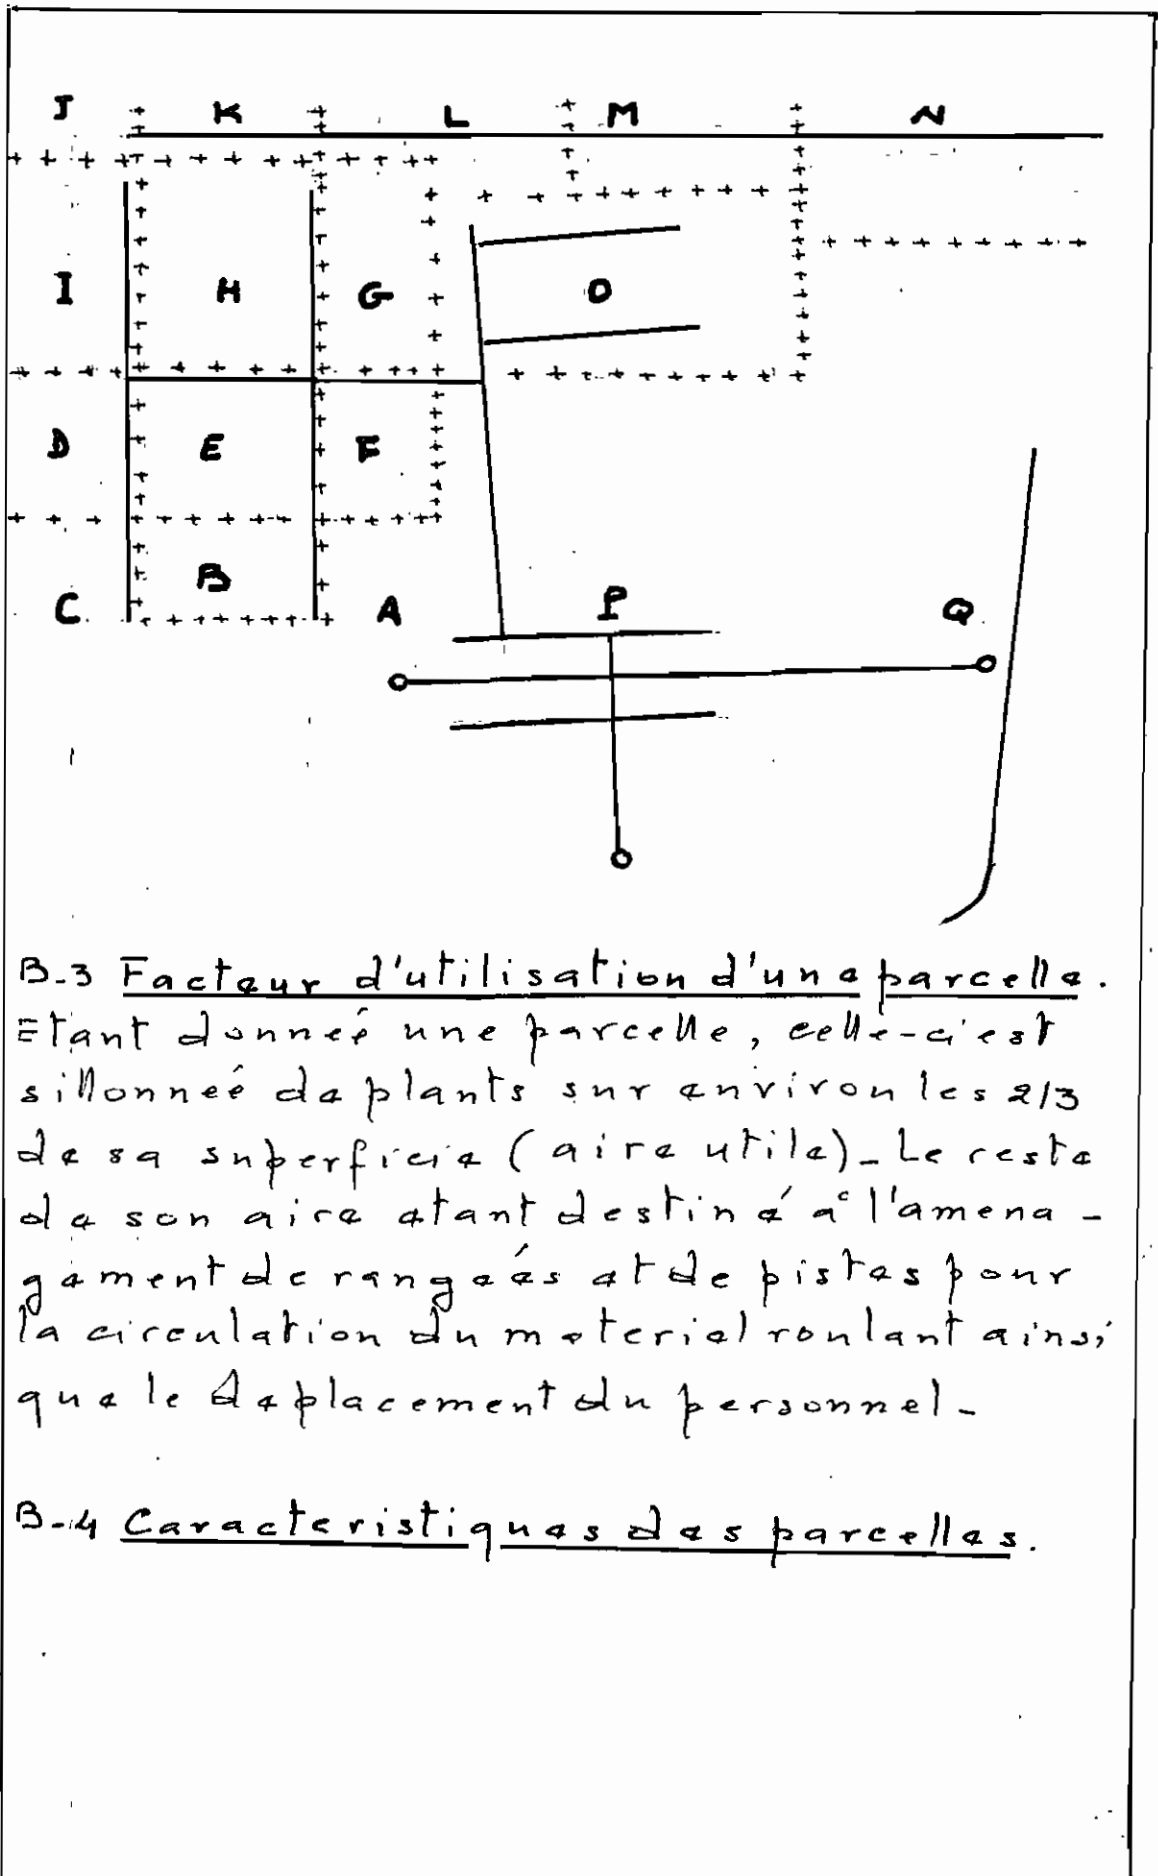 J K L M N
I H G O
D E F
C B A P Q
B-3 Facteur d'utilisation d'une parcelle.
Etant donneé une parcelle, celle-ci est
sillonneé de plants sur environ les 2/3
de sa superficie (aire utile)_ Le reste
de son aire etant destiné à l'amena-
gement de rangeés et de pistes pour
la circulation du materiel roulant ainsi
que le deplacement du personnel_
B-4 Caracteristiques des parcelles.